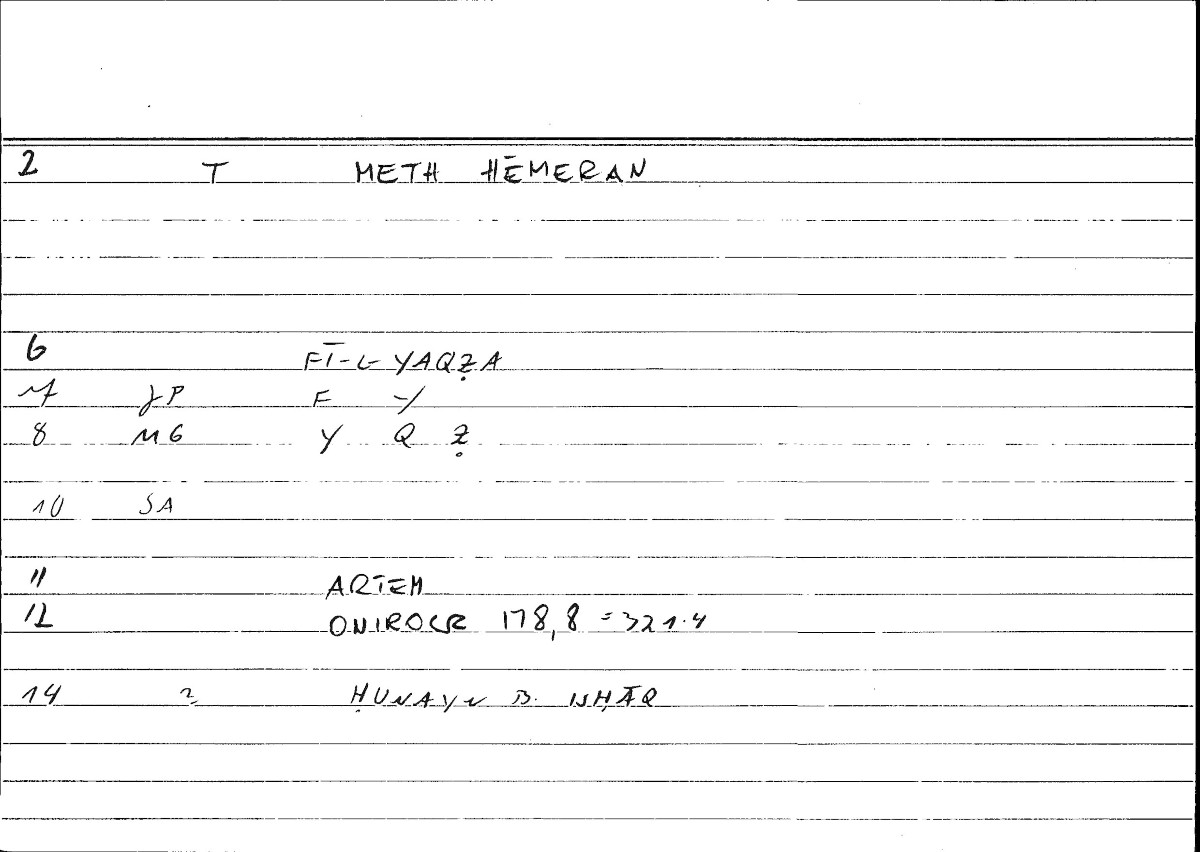 2 T METH HĒMERAN
6 FĪ-L-YAQẒA
F Y
8 MG Y Q Ẓ
10 SA
11 ARTEM
12 ONIROCR 178,8 = 321.4
14 2 ḤUNAYN B. ISḤĀQ